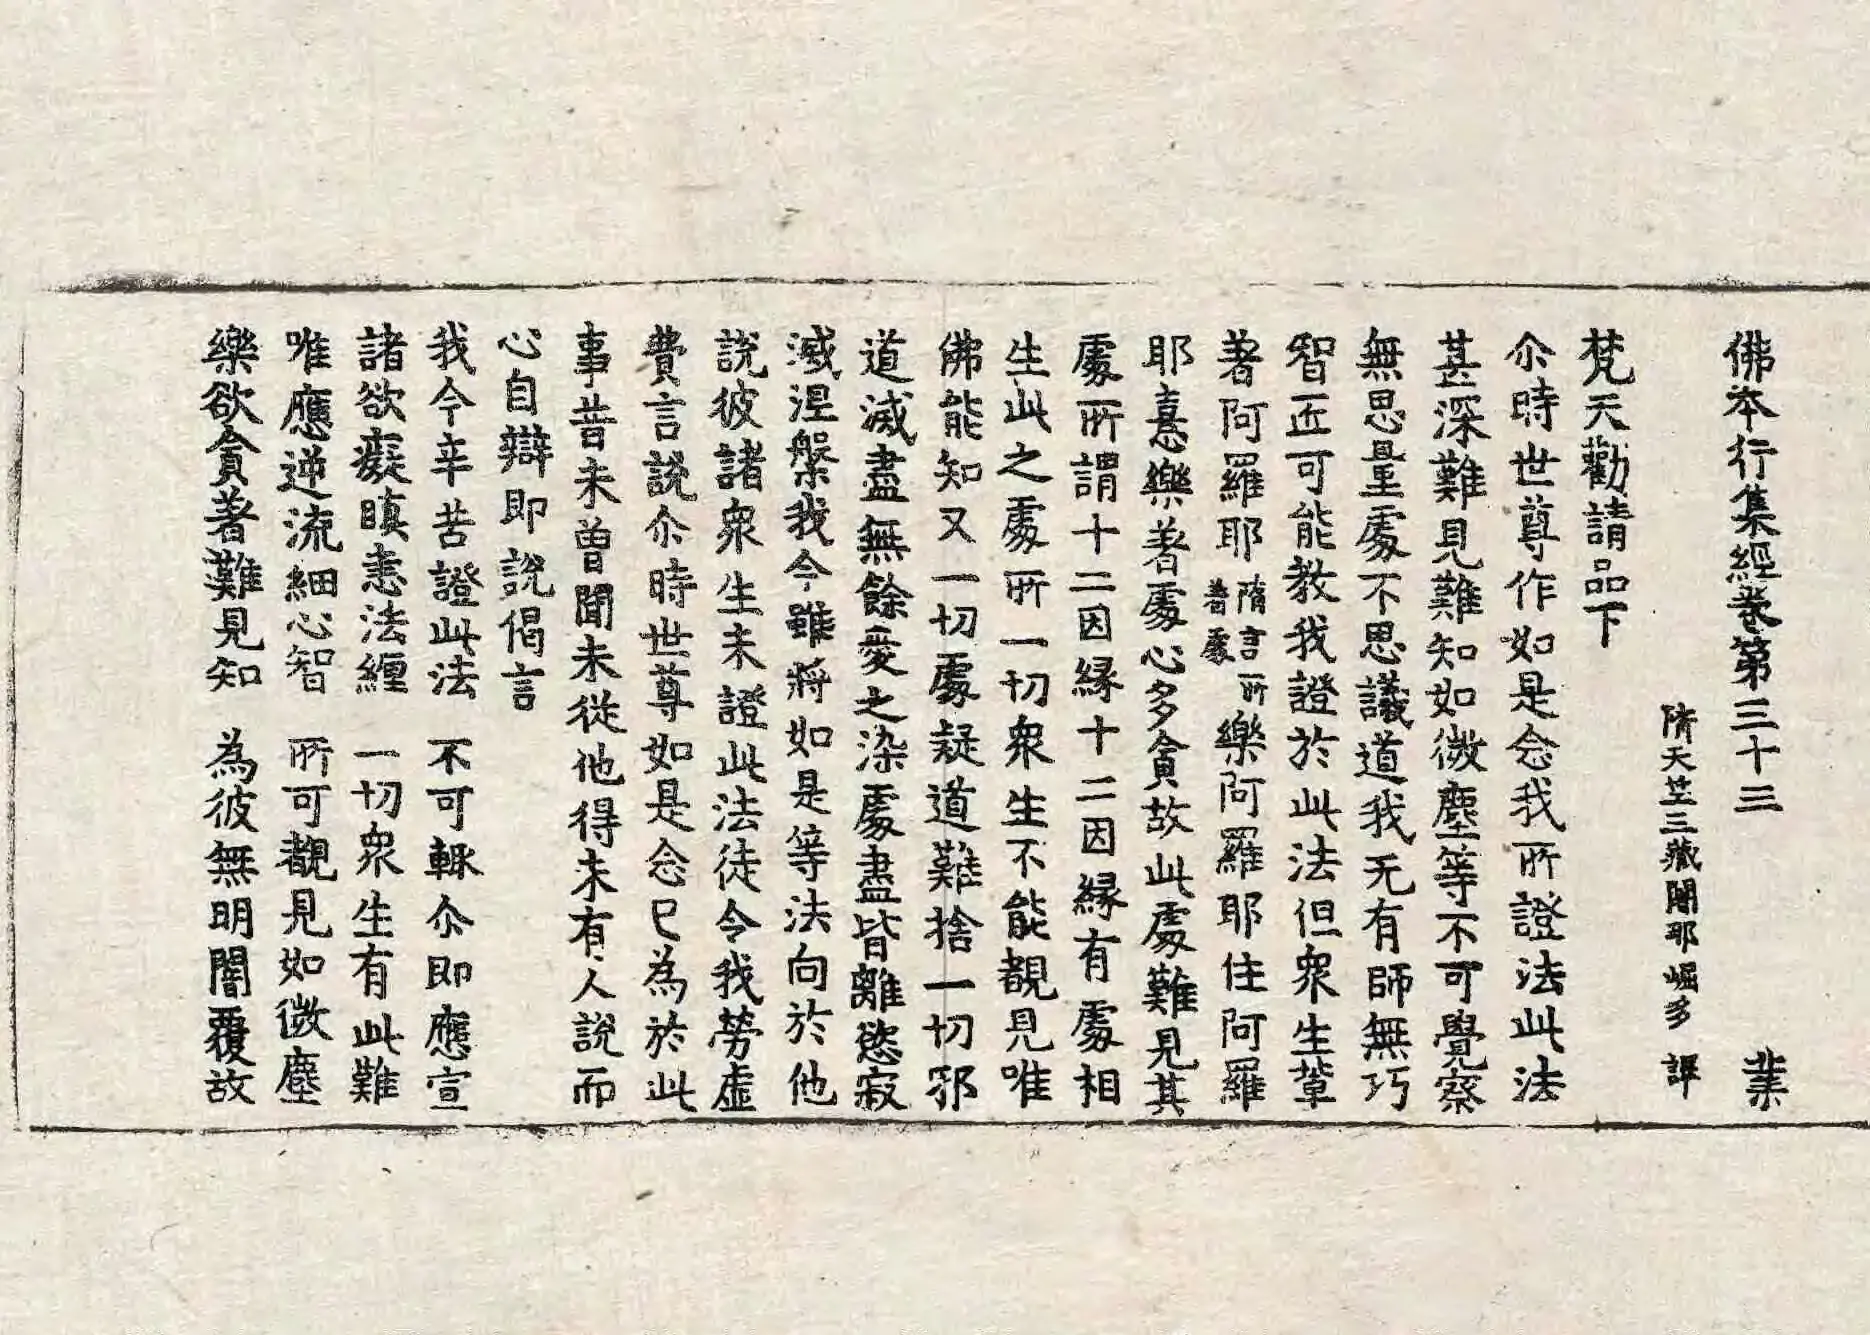 佛本行集經卷第三十三 業
隋天笁三藏闍那崛多 譯
梵天勸請品下
尒時世尊作如是念我所證法此法
甚深難見難知如微塵等不可覺察
無思量處不思議道我无有師無巧
智匠可能教我證於此法但衆生輩
著阿羅耶隋言所著處樂阿羅耶住阿羅
耶憙樂著處心多貪故此處難見其
處所謂十二因緣十二因緣有處相
生此之處所一切衆生不能覩見唯
佛能知又一切處疑道難捨一切邪
道滅盡無餘愛之染處盡皆離慾寂
滅涅槃我今雖將如是等法向於他
說彼諸衆生未證此法徒令我勞虛
費言說尒時世尊如是念已為於此
事昔未曾聞未從他得未有人說而
心自辯即說偈言
我今辛苦證此法 不可輙尒即應宣
諸欲癡瞋恚法纏 一切衆生有此難
唯應逆流細心智 所可覩見如微塵
樂欲貪著難見知 為彼無明闇覆故